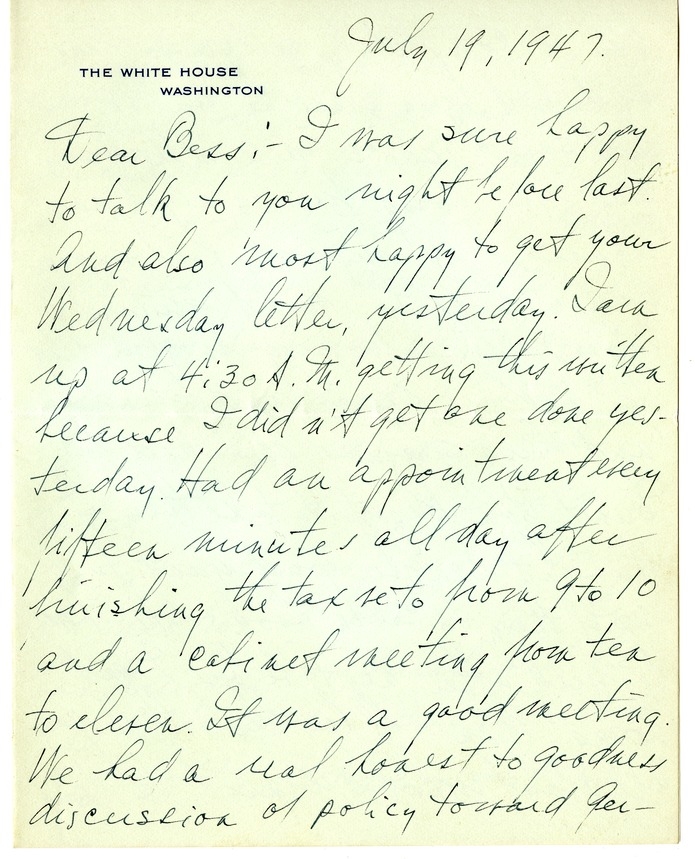 July 19, 1947.
THE WHITE HOUSE
WASHINGTON
Dear Bess:- I was sure happy
to talk to you night before last.
And also most happy to get your
Wednesday letter, yesterday. I am
up at 4:30 A.M. getting this written
because I didn't get one done yes-
terday. Had an appointment every
fifteen minutes all day after
finishing the tax veto from 9 to 10
and a cabinet meeting from ten
to eleven. It was a good meeting.
We had a real honest to goodness
discussion of policy toward Ger-